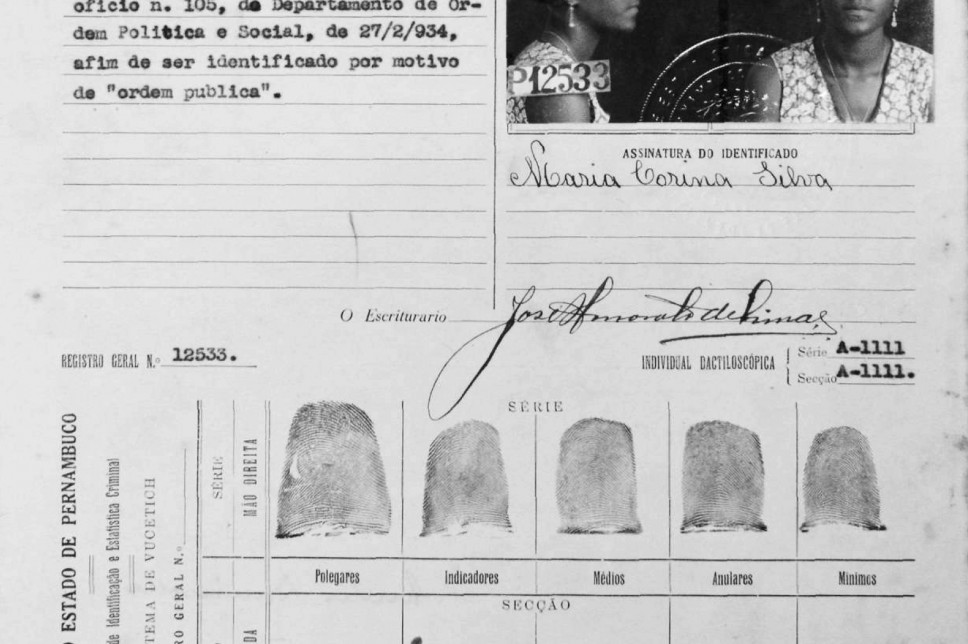 oficio n. 105, da Departamento de Or-
dem Politica e Social, de 27/2/934,
afim de ser identificado por motivo
de "ordem publica".
P12533
ASSINATURA DO IDENTIFICADO
Maria Corina Silva
O Escriturario José Honorato de Lima
REGISTRO GERAL N.º 12533.
INDIVIDUAL DACTILOSCÓPICA
Série A-1111
Secção A-1111.
SÉRIE
ESTADO DE PERNAMBUCO
de Identificação e Estatística Criminal
TEMA DE VUCETICH
RO GERAL N.º
SÉRIE
MÃO DIREITA
Polegares Indicadores Médios Anulares Mínimos
SECÇÃO
DA